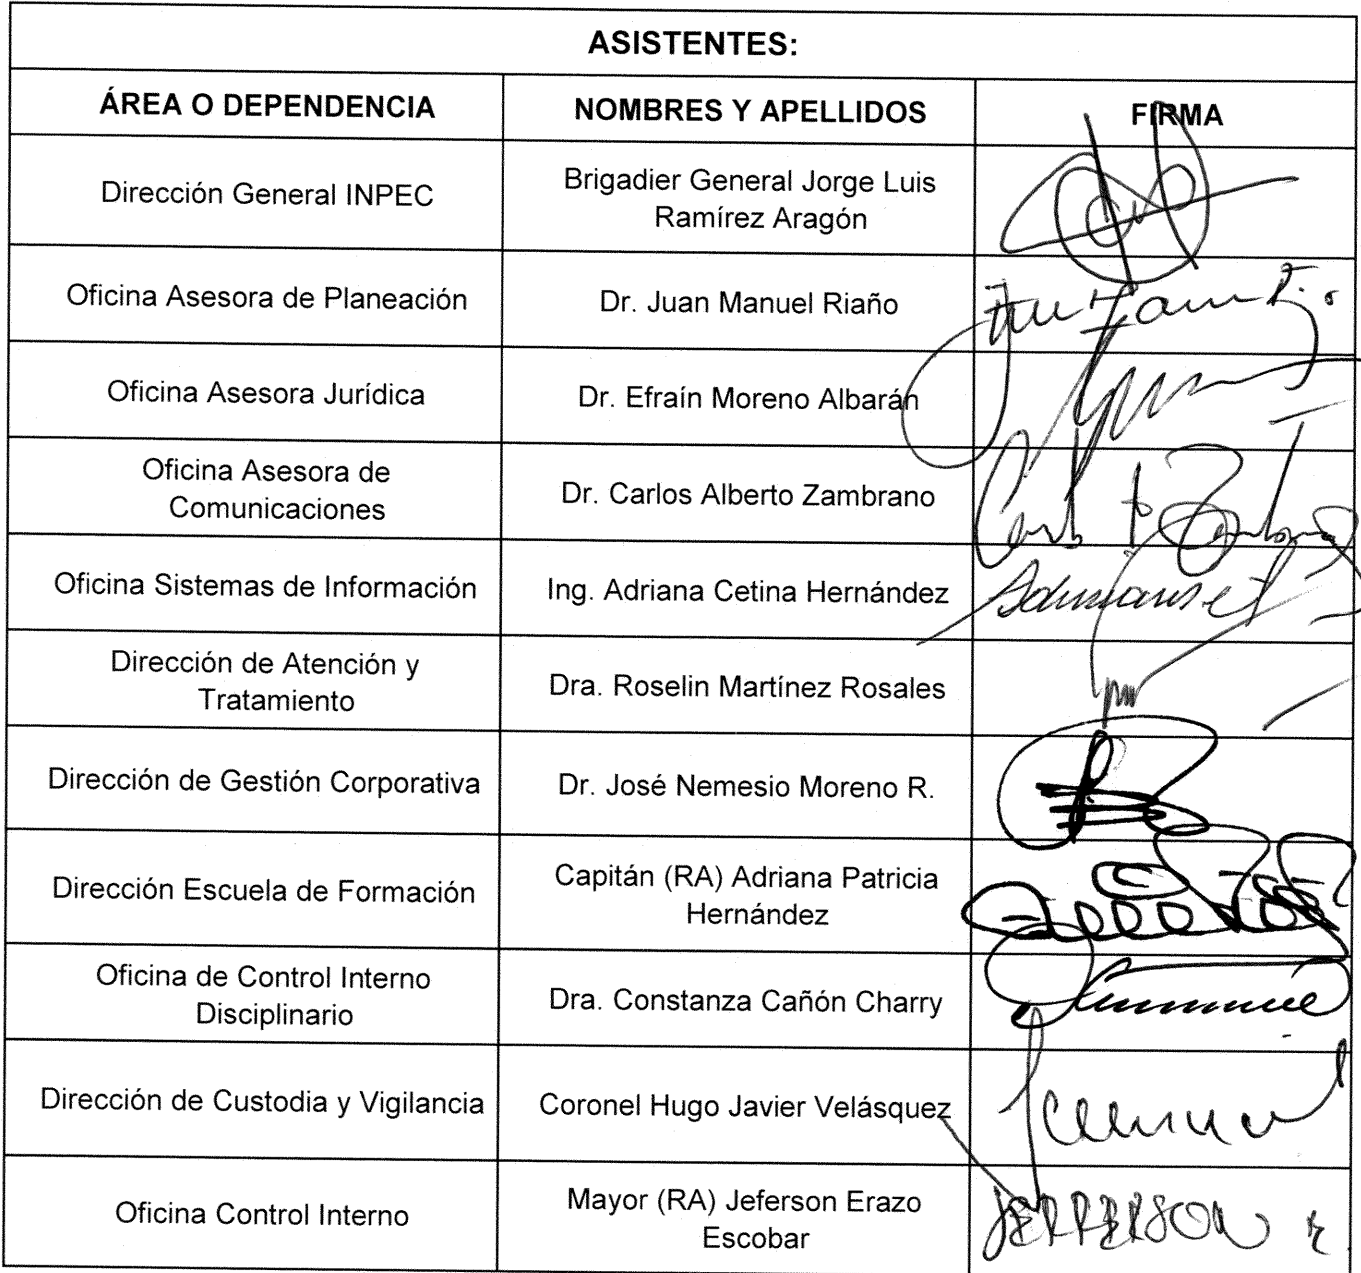 ASISTENTES:
ÁREA O DEPENDENCIA
NOMBRES Y APELLIDOS
FIRMA
Dirección General INPEC
Brigadier General Jorge Luis
Ramírez Aragón
Oficina Asesora de Planeación
Dr. Juan Manuel Riaño
Oficina Asesora Jurídica
Dr. Efraín Moreno Albarán
Oficina Asesora de
Comunicaciones
Dr. Carlos Alberto Zambrano
Oficina Sistemas de Información
Ing. Adriana Cetina Hernández
Dirección de Atención y
Tratamiento
Dra. Roselin Martínez Rosales
Dirección de Gestión Corporativa
Dr. José Nemesio Moreno R.
Dirección Escuela de Formación
Capitán (RA) Adriana Patricia
Hernández
Oficina de Control Interno
Disciplinario
Dra. Constanza Cañón Charry
Dirección de Custodia y Vigilancia
Coronel Hugo Javier Velásquez
Oficina Control Interno
Mayor (RA) Jeferson Erazo
Escobar
JEFFERSON E.